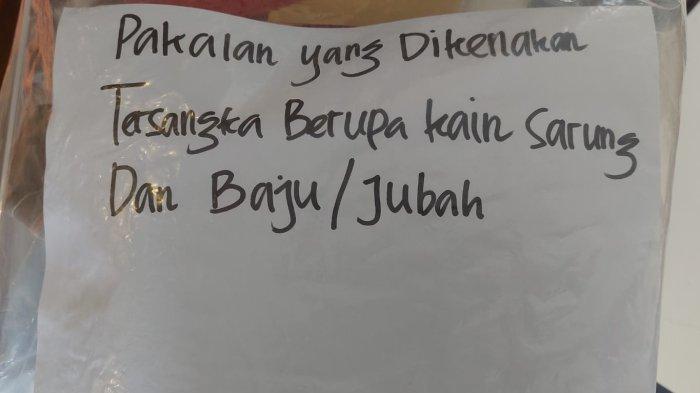 Pakaian yang Dikenakan
Tersangka Berupa kain Sarung
Dan Baju/Jubah